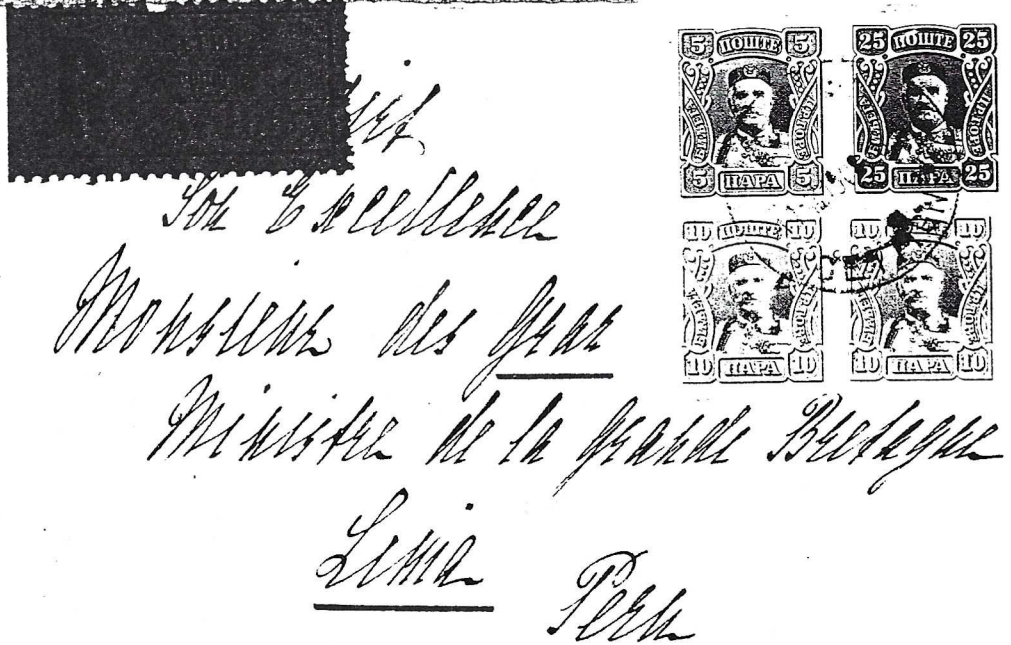 5 ПОШТЕ 5
5 ПАРА 5
25 ПОШТЕ 25
25 ПАРА 25
10 ПОШТЕ 10
10 ПАРА 10
10 10
10 ПАРА 10
Son Excellence
Monsieur des Graz
Ministre de la Grande Bretagne
Lima
Peru